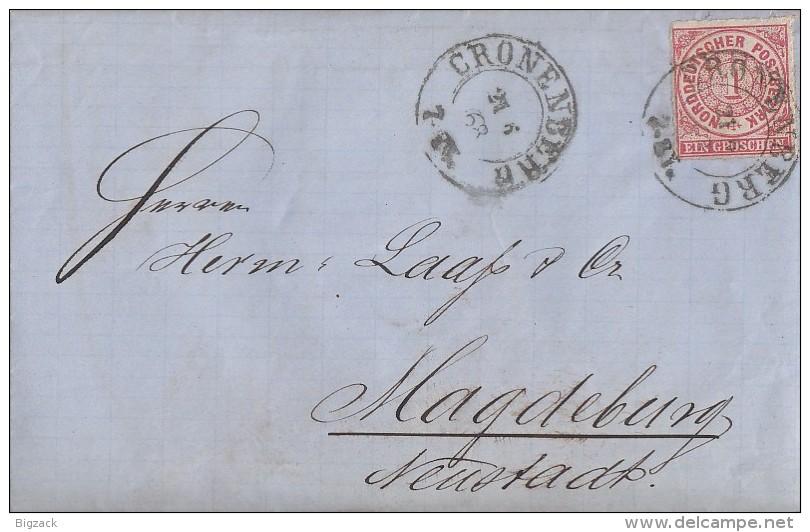 CRONENBERG
21 5
68
NORDDEUTSCHER POSTBEZIRK
1
EIN GROSCHEN
CRONENBERG
Herren
Herm: Laaß & Co
Magdeburg
Neustadt.
Bigzack
delcampe.net